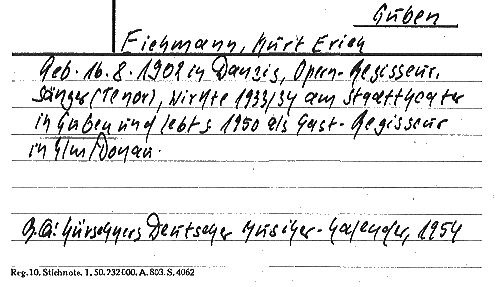 Guben
Eichmann, Kurt Erich
Geb. 16.8.1902 in Danzig, Opern-Regisseur,
Sänger (Tenor), Wirkte 1933/34 am Stadttheater
in Guben und lebt s 1950 als Gast-Regisseur
in Ulm/Donau.
Kürschners Deutscher Musiker-Kalender, 1954
Reg. 10. Stichnote. 1. 50. 232000. A. 803. S. 4062